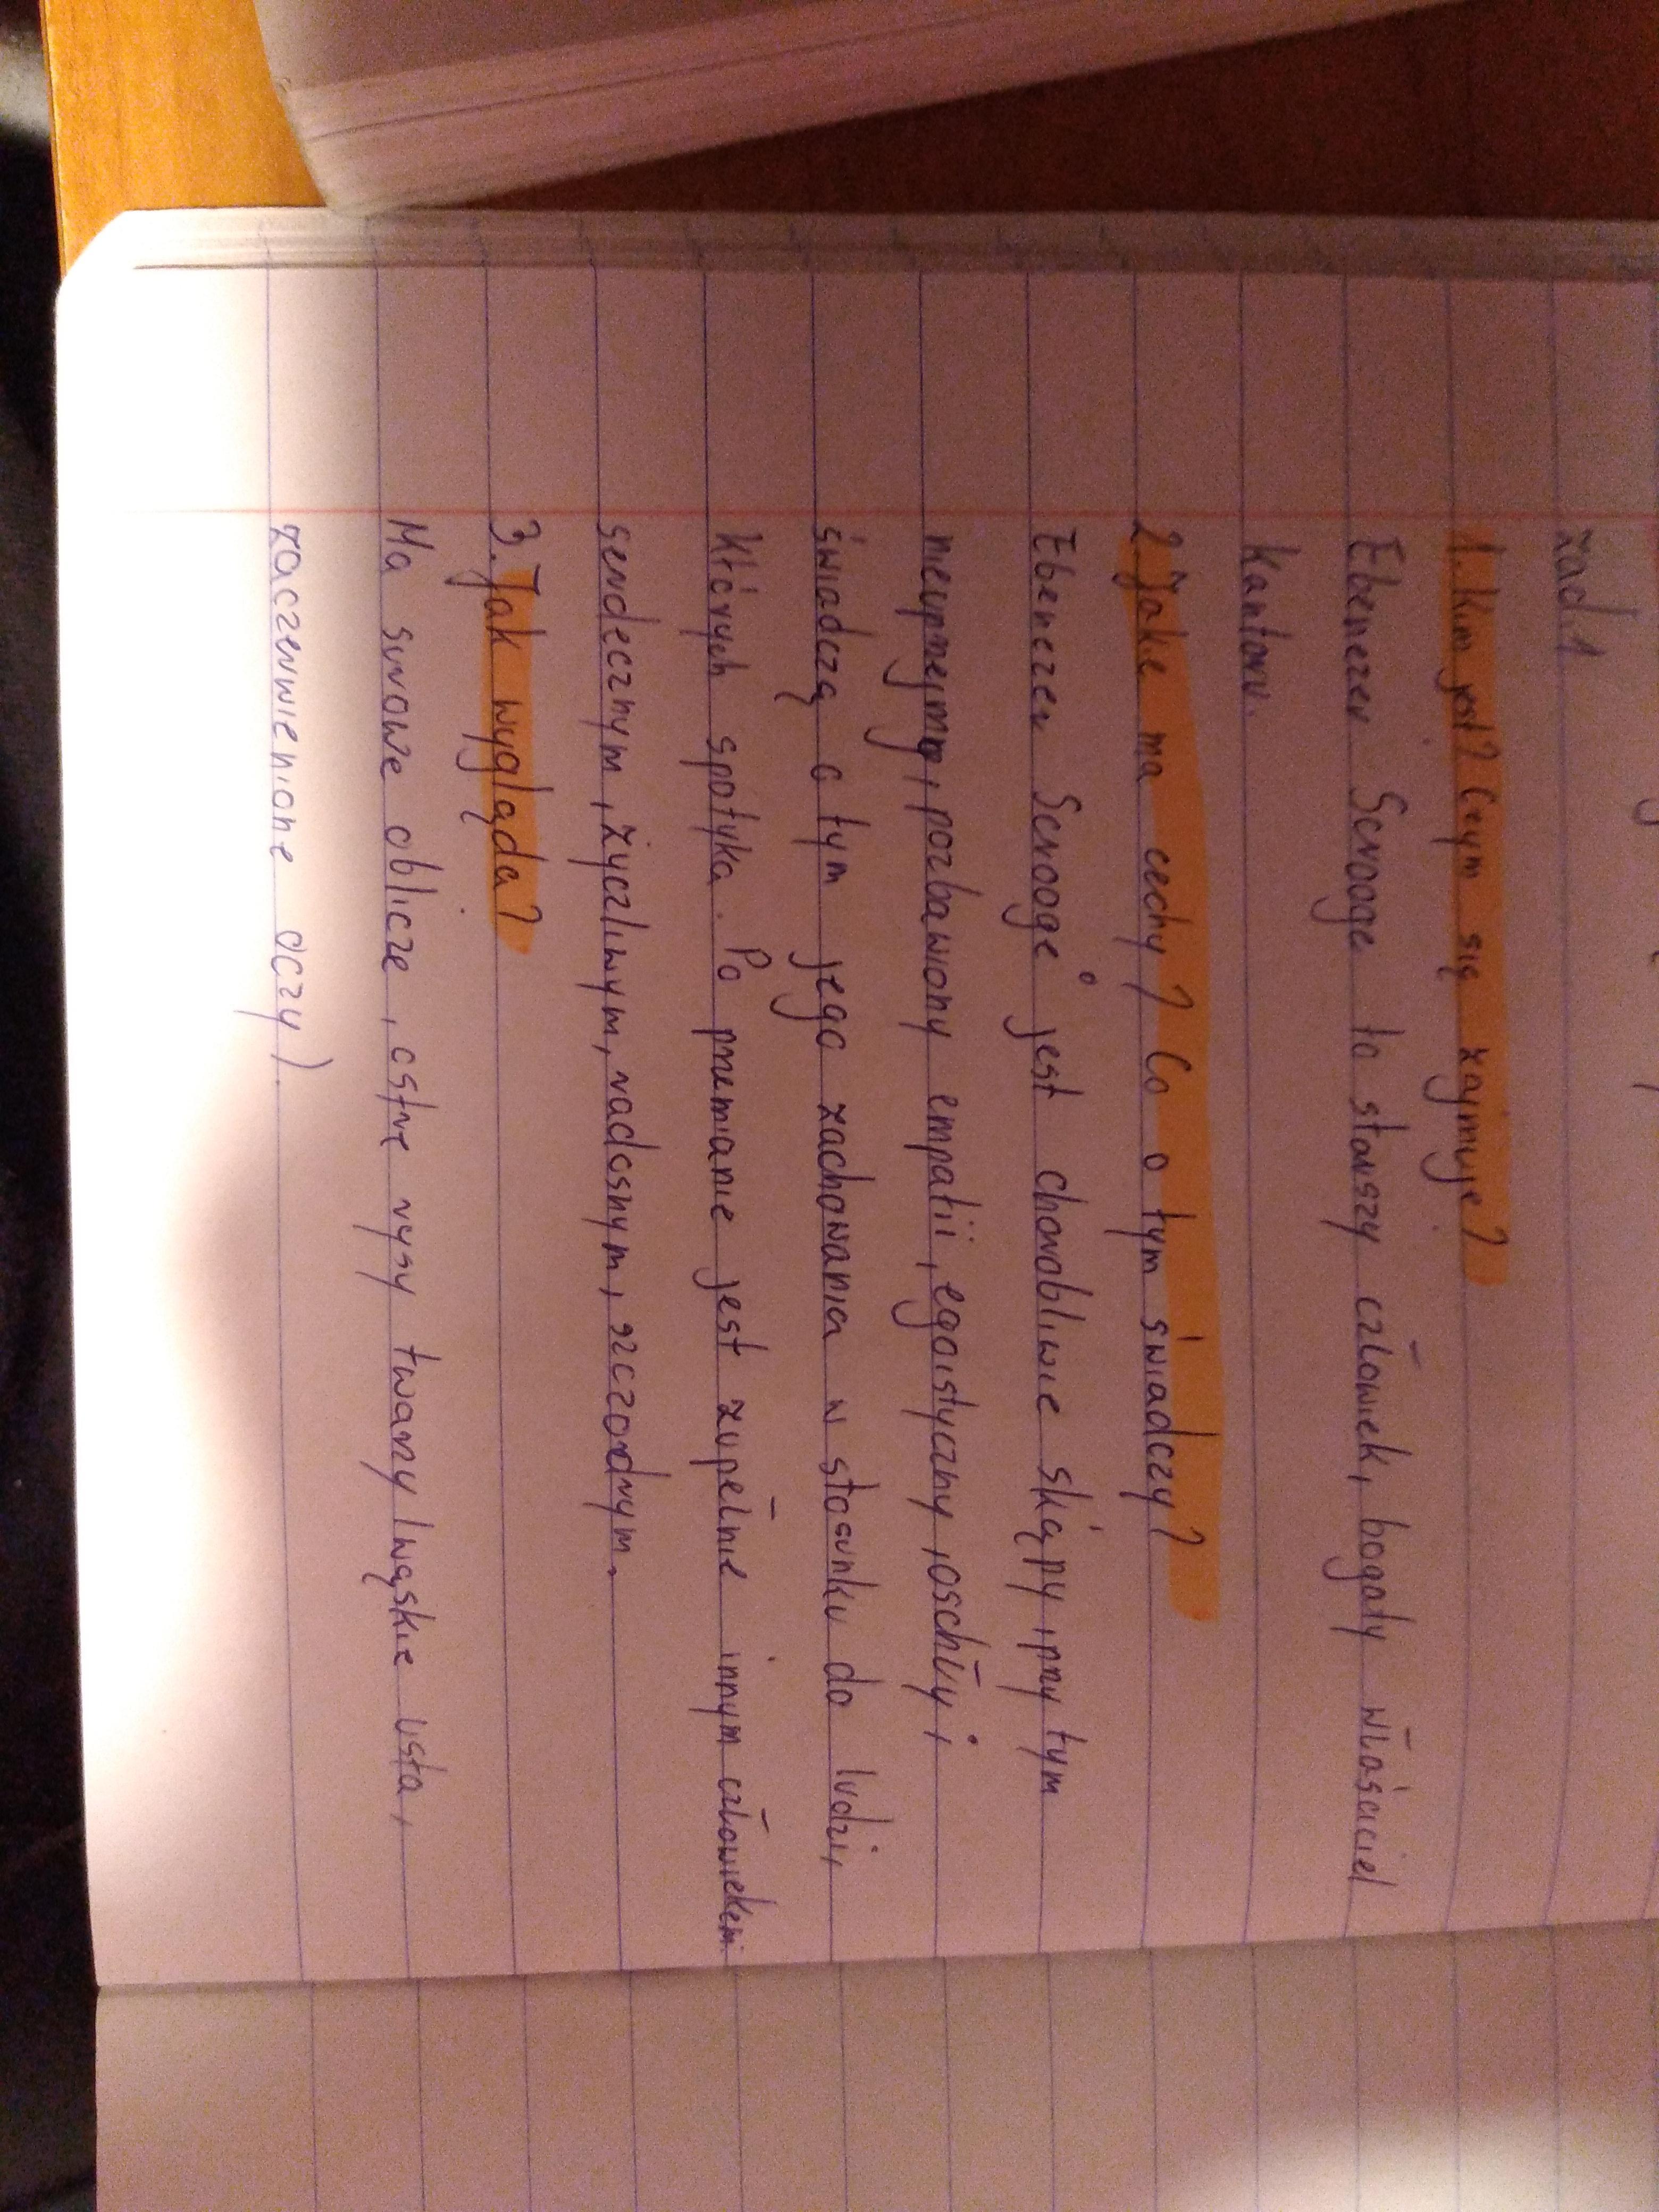 zad.1
1. Kim jest? Czym się zajmuje?
Ebenezer Scrooge to starszy człowiek, bogaty właściciel
kantoru.
2. Jakie ma cechy? Co o tym świadczy?
Ebenezer Scrooge jest chorobliwie skąpy, przy tym
nieuprzejmy, pozbawiony empatii, egoistyczny, oschły,
świadczą o tym jego zachowania w stosunku do ludzi,
których spotyka. Po przemianie jest zupełnie innym człowiekem.
serdecznym, życzliwym, radosnym, szczodrym.
3. Jak wygląda?
Ma surowe oblicze, ostre rysy twarzy (wąskie usta,
zaczerwienione oczy).